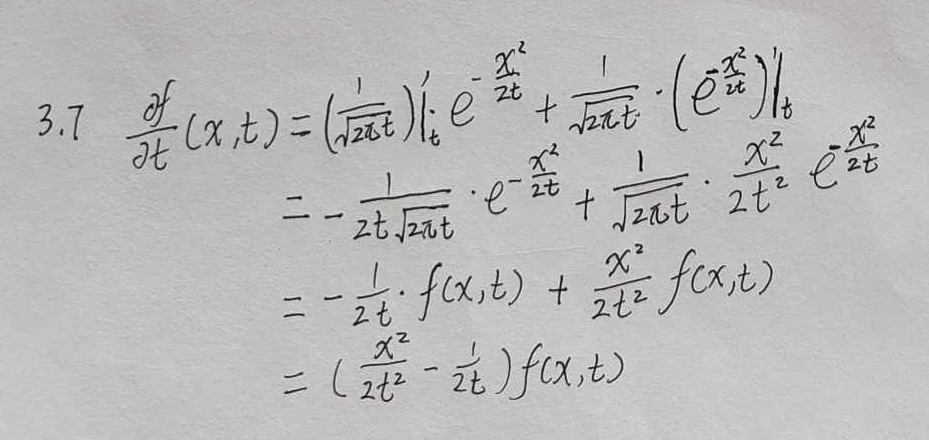 3.7 ∂f/∂t (x,t) = (1/√(2πt))'|_t · e^(-x²/2t) + 1/√(2πt) · (e^(-x²/2t))'|_t
= - 1/(2t√(2πt)) · e^(-x²/2t) + 1/√(2πt) · x²/2t² e^(-x²/2t)
= - 1/2t · f(x,t) + x²/2t² f(x,t)
= (x²/2t² - 1/2t) f(x,t)